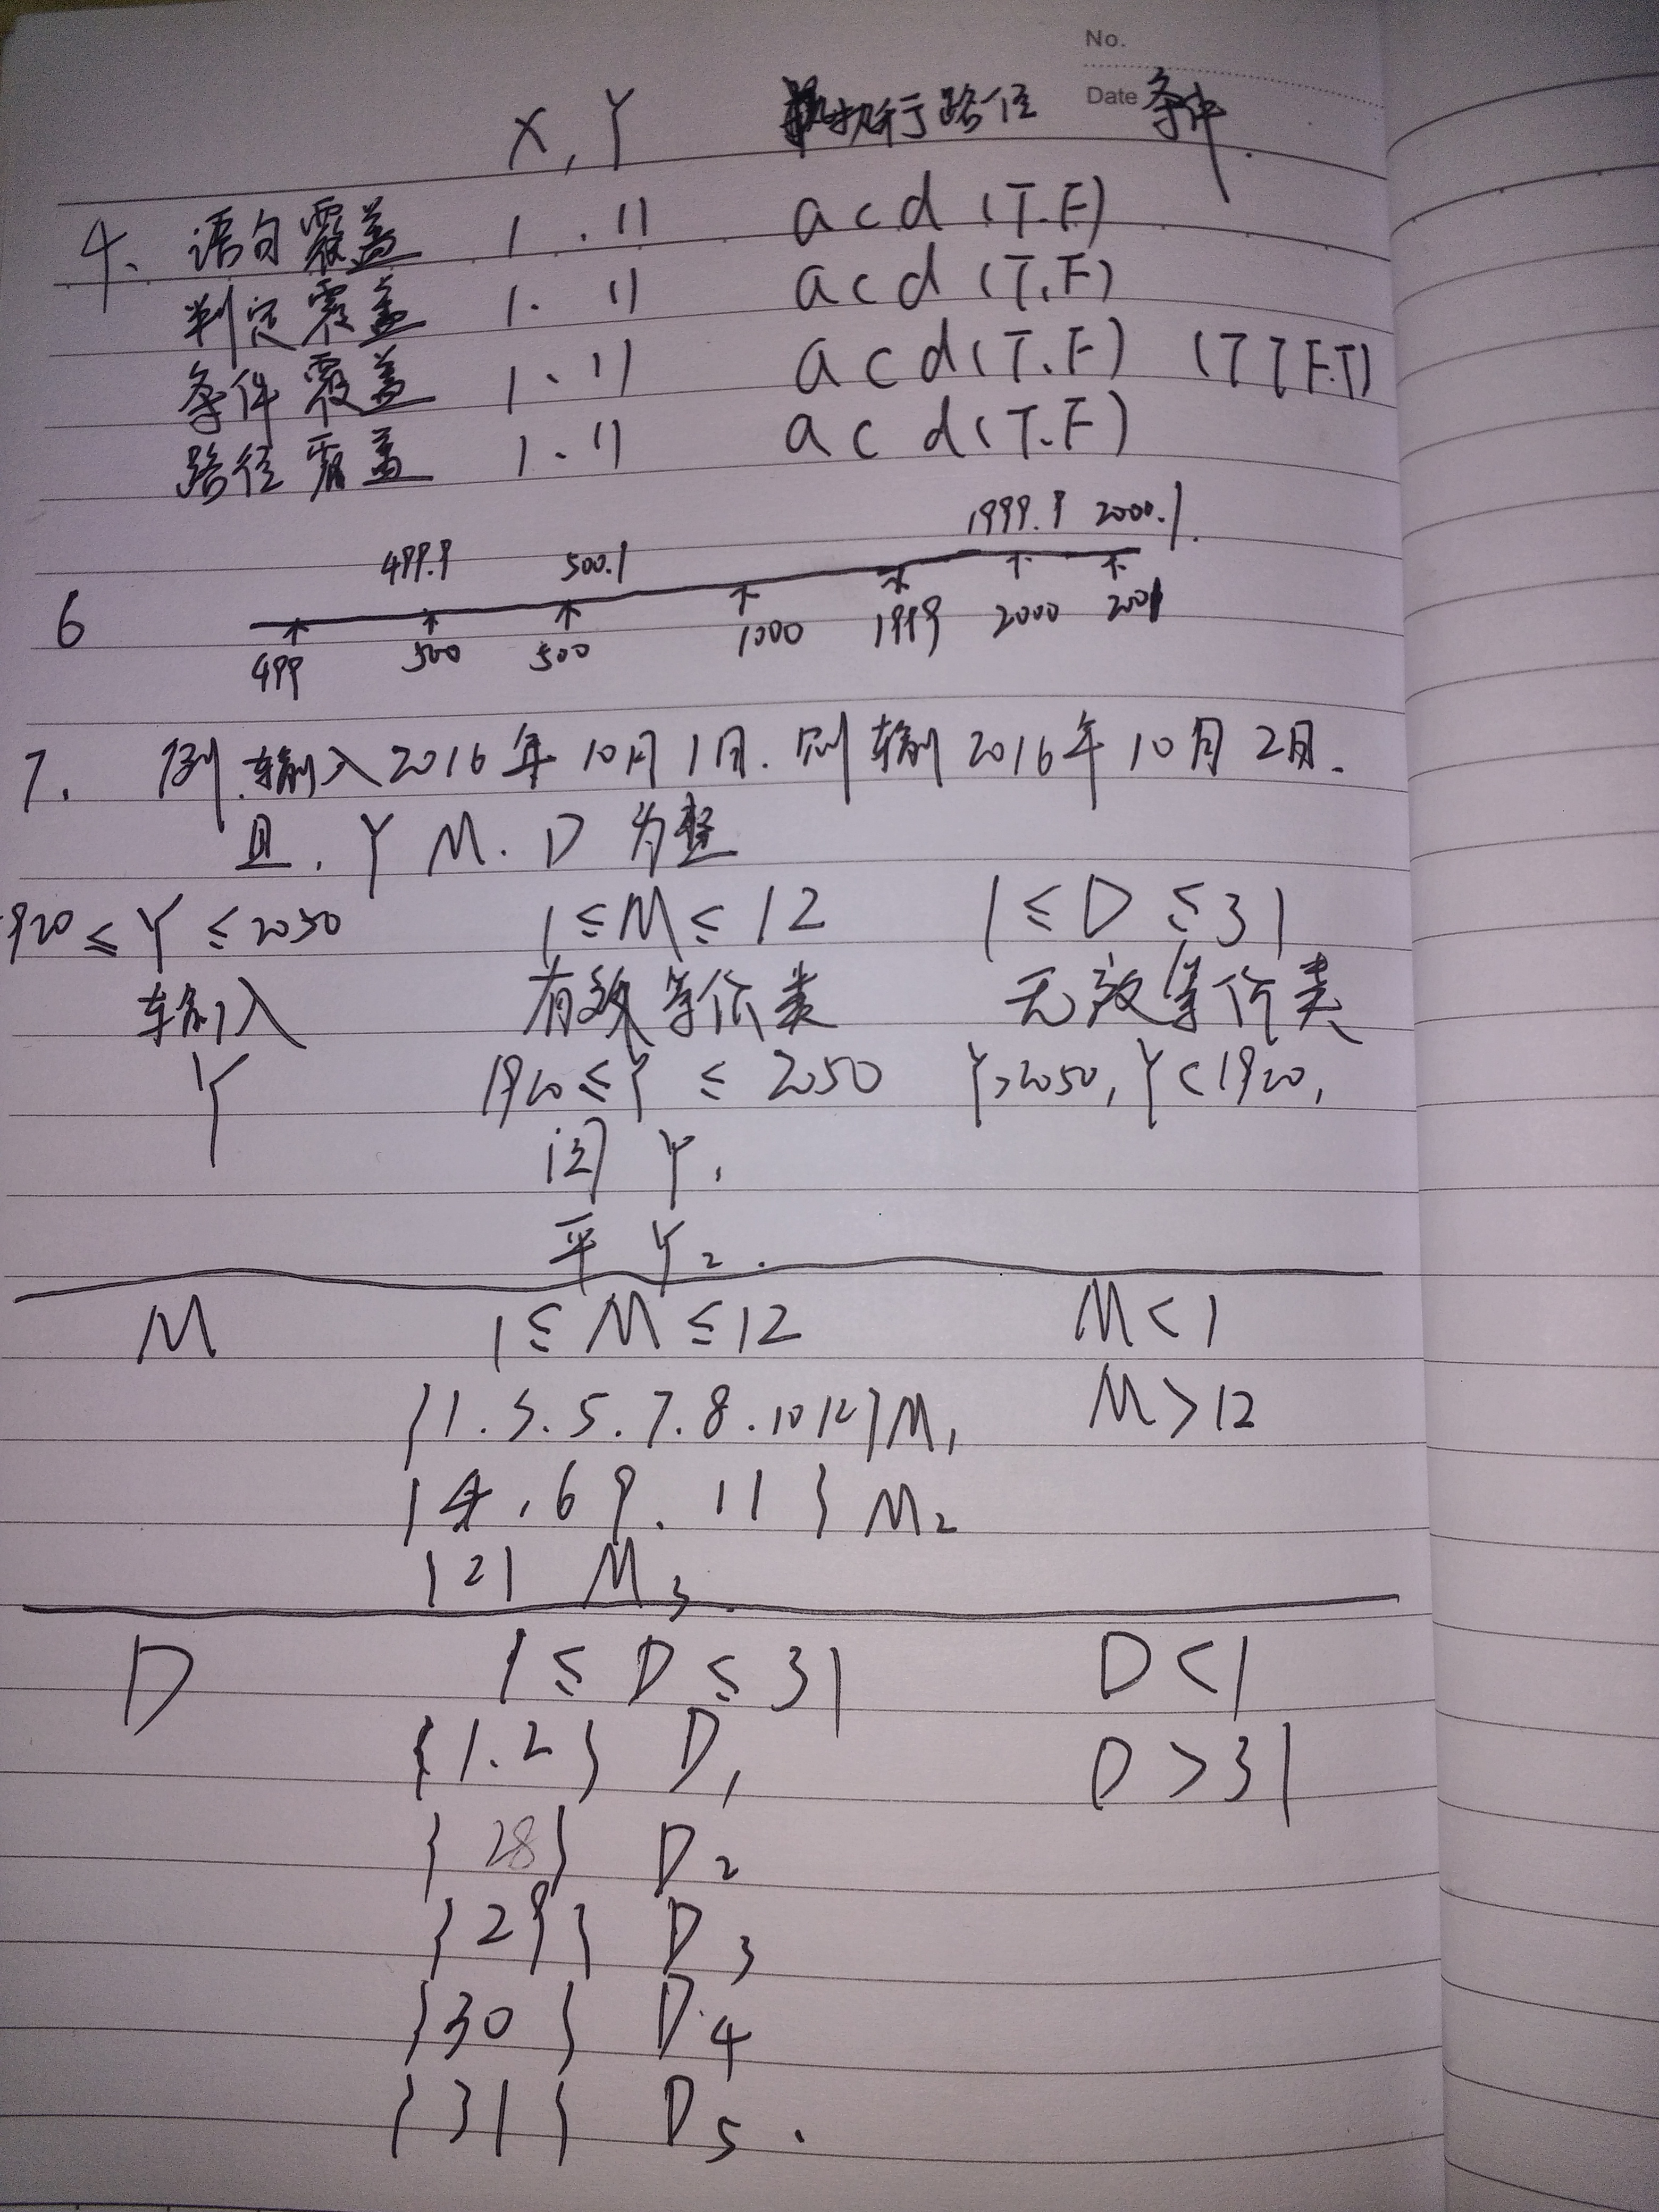 No.
Date
X, Y 执行路径 条件.
4. 语句覆盖 1 . 11 a c d (T.F)
判定覆盖 1. 11 a c d (T.F)
条件覆盖 1. 11 a c d (T.F) (T T F.T)
路径覆盖 1. 11 a c d (T.F)
499.9 500.1 1999.9 2000.1
6
499 500 500 1000 1999 2000 2001
7. 例.输入2016年10月1日.则输 2016年10月2日.
且. Y M. D 为整
1920 ≤ Y ≤ 2050 1 ≤ M ≤ 12 1 ≤ D ≤ 31
输入 有效等价类 无效等价类
Y 1920 ≤ Y ≤ 2050 Y>2050, Y<1920,
闰 Y1
平 Y2.
M 1 ≤ M ≤ 12 M < 1
{1.3.5.7.8.10 12} M1 M > 12
{4.6 9. 11} M2
{2} M3.
D 1 ≤ D ≤ 31 D < 1
{1.2} D1 D > 31
{28} D2
{29} D3
{30} D4
{31} D5.